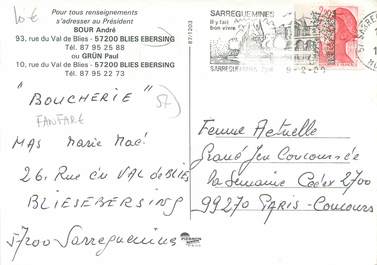 10€
Pour tous renseignements
s'adresser au Président
BOUR André
93, rue du Val de Blies - 57200 BLIES EBERSING
Tél. 87 95 25 88
ou GRÜN Paul
10, rue du Val de Blies - 57200 BLIES EBERSING
Tél. 87 95 22 73
87/1203
SARREGUEMINES
Il y fait
bon vivre
SARREGUEMINES
2,20
57 SARREG
"BOUCHERIE"
57
FANFARE
MAS Marie Noé
26, Rue du VAL de BLIES
BLIESEBERSING
57200 Sarreguemines
Femme Actuelle
Grand Jeu Concours
la Semaine Cedex 2700
99270 PARIS-Concours